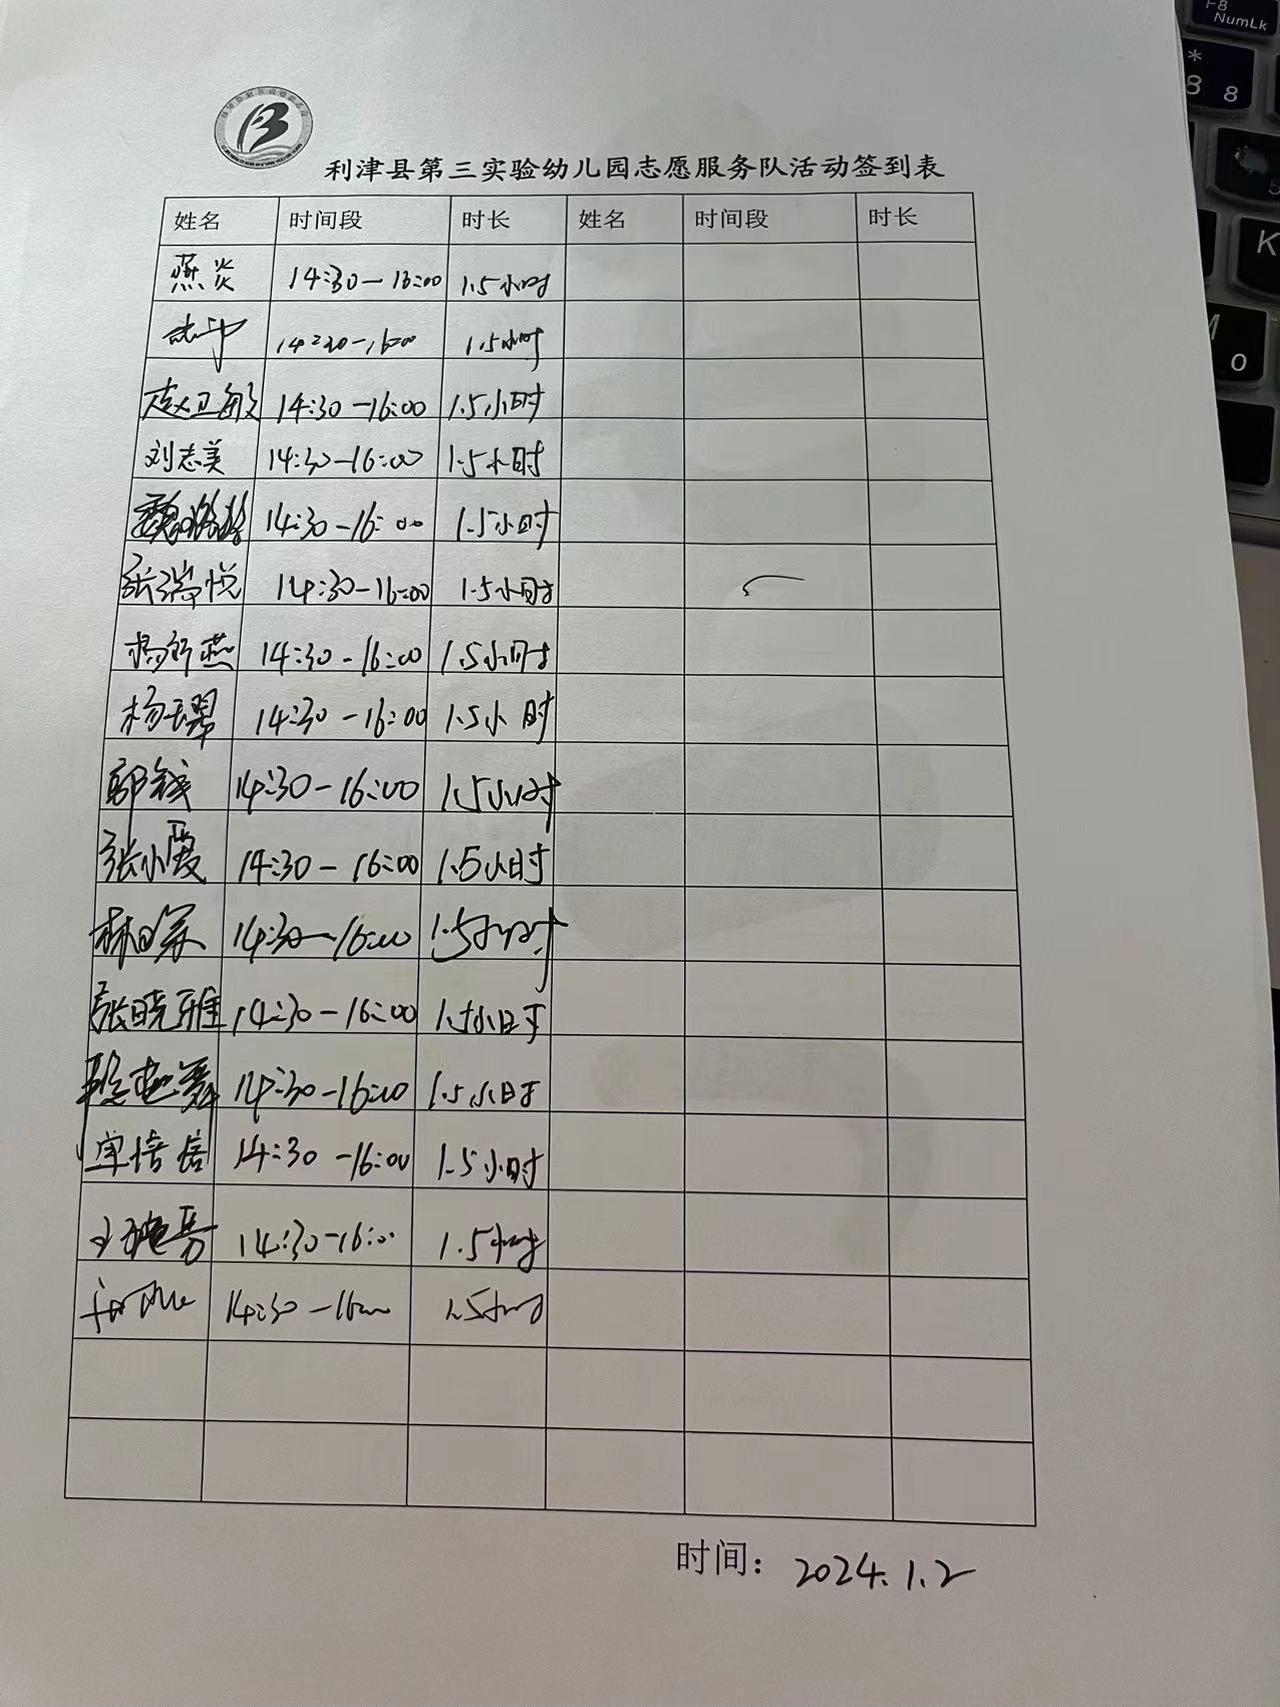 利津县第三实验幼儿园志愿服务队活动签到表
姓名 时间段 时长 姓名 时间段 时长
燕炎 14:30-16:00 1.5小时
14:30-16:00 1.5小时
赵卫敏 14:30-16:00 1.5小时
刘志美 14:30-16:00 1.5小时
14:30-16:00 1.5小时
张瑞悦 14:30-16:00 1.5小时
杨新燕 14:30-16:00 1.5小时
杨玉翠 14:30-16:00 1.5小时
14:30-16:00 1.5小时
张小霞 14:30-16:00 1.5小时
14:30-16:00 1.5小时
张晓雅 14:30-16:00 1.5小时
14:30-16:00 1.5小时
单倍倍 14:30-16:00 1.5小时
14:30-16:00 1.5小时
14:30-16:00 1.5小时
时间: 2024.1.2
F8
NumLk
*
8 8
K
M
0